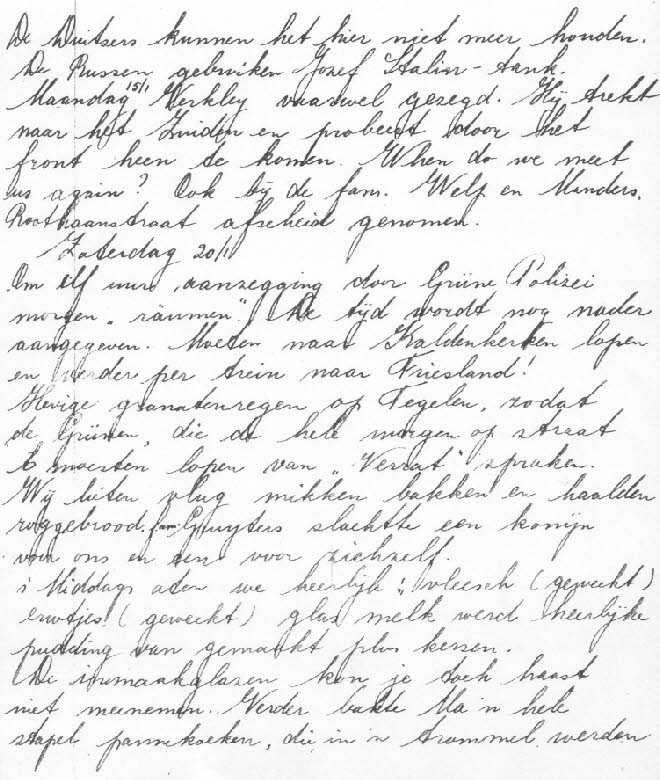 De Duitsers kunnen het hier niet meer houden.
De Russen gebruiken Jozef Stalin-tank.
Maandag 15/1 Verkley vaarwel gezegd. Hij trekt
naar het Zuiden en probeert door het
front heen te komen. When do we meet
us again? Ook bij de fam. Welp en Minders,
Roothaanstraat afscheid genomen.
Zaterdag 20/1
Om elf uur aanzegging door Grüne Polizei
morgen "räumen". De tijd wordt nog nader
aangegeven. Moeten naar Kaldenkerken lopen
en verder per trein naar Friesland!
Hevige granatenregen op Tegelen, zodat
de Grünen, die de hele morgen op straat
moesten lopen van "Verrat" spraken.
Wij lieten vlug mikken bakken en haalden
roggebrood. fam Gruyters slachtte een konijn
voor ons en een voor zichzelf.
's Middags aten we heerlijk: vleesch (geweckt)
erwtjes (geweckt) glas melk werd heerlijke
pudding van gemaakt plus kersen.
De inmaakglazen kon je toch haast
niet meenemen. Verder bakte Ma 'n hele
stapel pannekoeken, die in 'n trommel werden